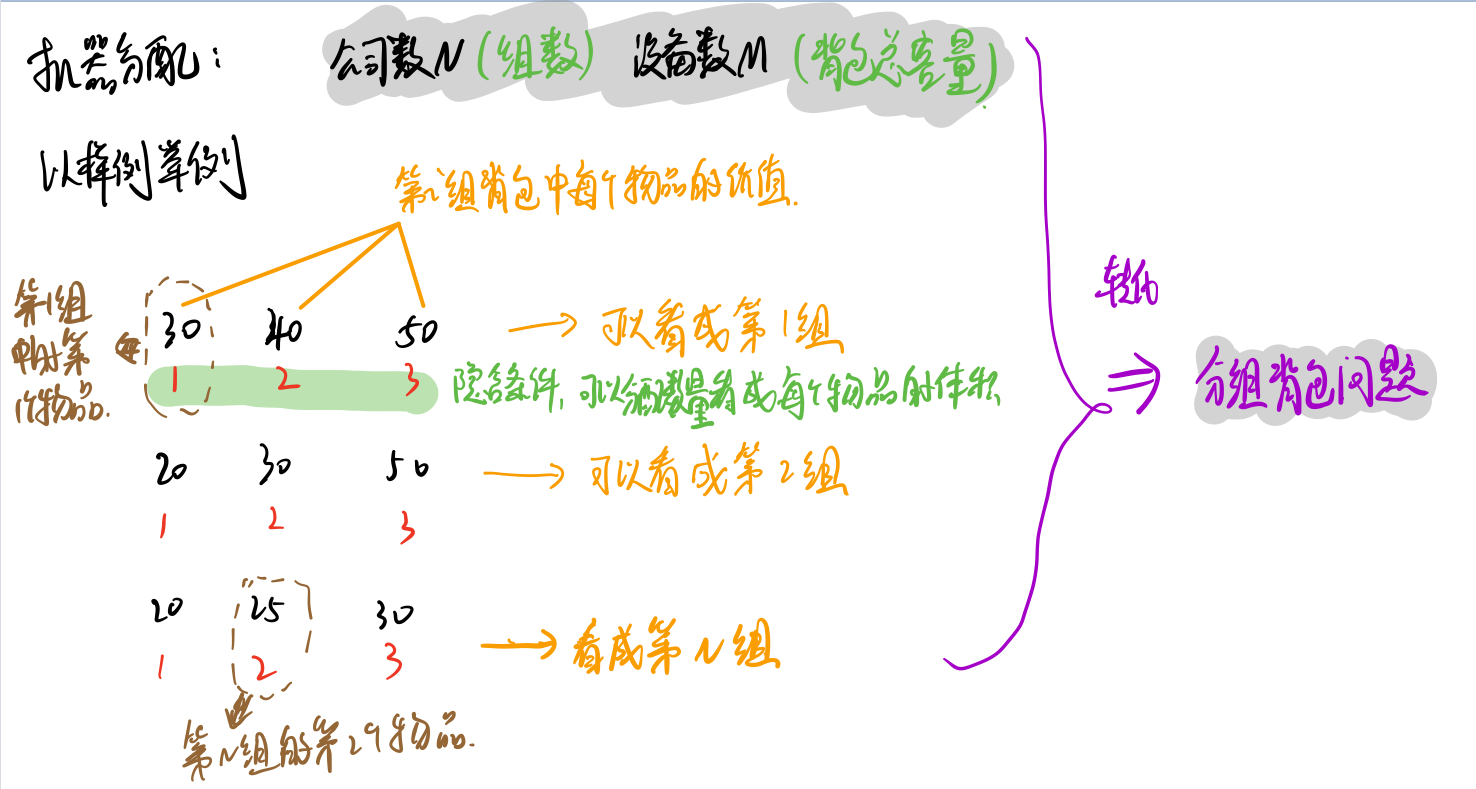 机器分配： 公司数N（组数） 设备数M（背包总容量）
以样例举例
第i组背包中每个物品的价值.
第1组
中的第
1个物品.
30 40 50 → 可以看成第1组
1 2 3 隐含条件, 可以分配数量看成每个物品的体积
20 30 50 → 可以看成第2组
1 2 3
20 25 30 → 看成第N组
1 2 3
第N组的第2个物品.
转化
⇒ 分组背包问题